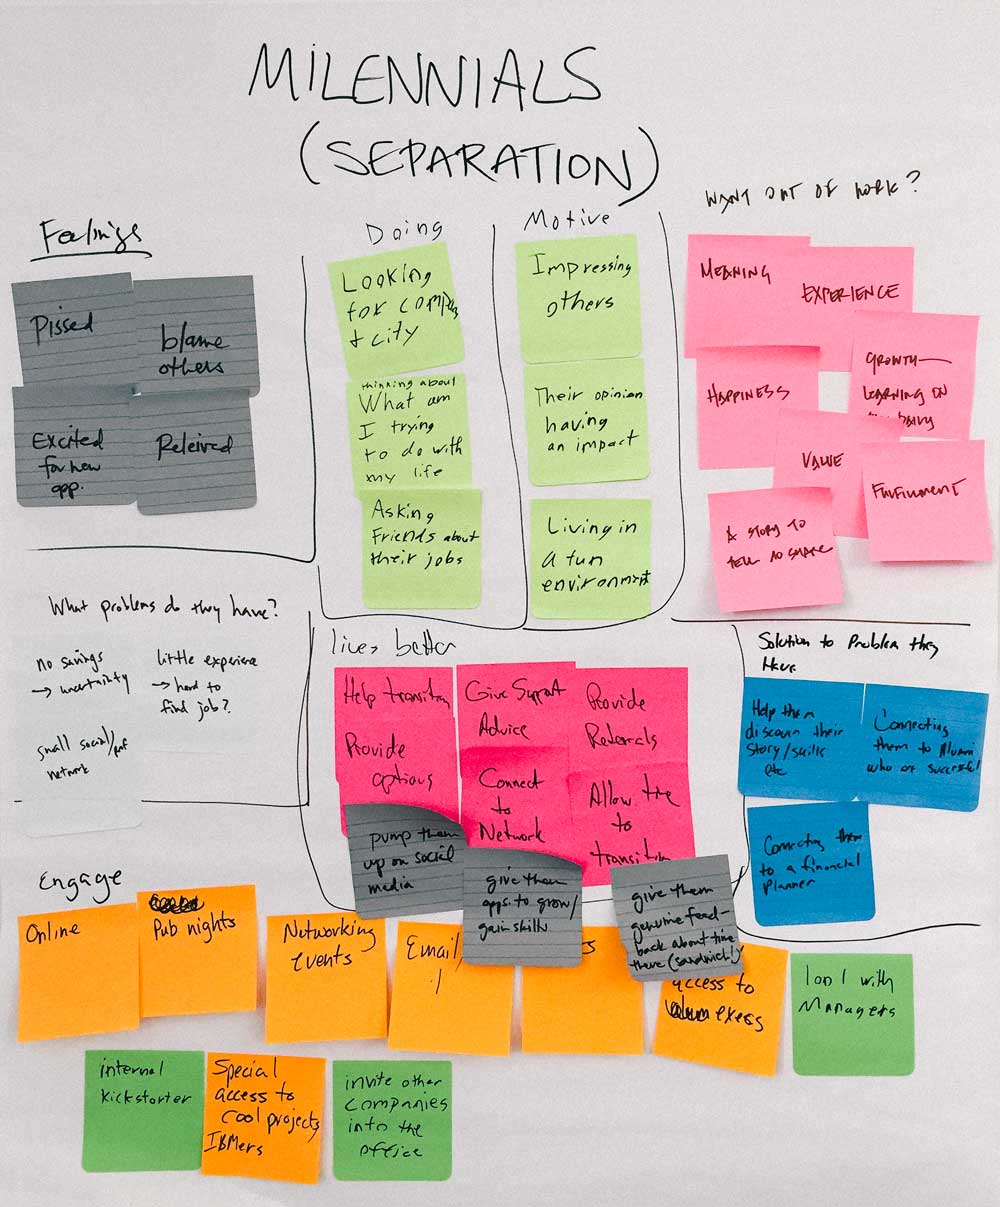 MILENNIALS
(SEPARATION)
Feelings
Pissed
blame
others
Excited
for new
opp.
Releived
Doing
Looking
for company
+ city
thinking about
What am
I trying
to do with
my life
Asking
Friends about
their jobs
Motive
Impressing
others
Their opinion
having
an impact
Living in
a fun
environment
WANT OUT OF WORK?
MEANING
EXPERIENCE
HAPPINESS
GROWTH—
LEARNING ON
VALUE
FULFILLMENT
A STORY TO
TELL
What problems do they have?
no savings
→ uncertainty
little experience
→ hard to
find job?
small social/
network
lives better
Help transition
Give Support
Advice
Provide
Referrals
Provide
options
Connect
to
Network
Allow time
to
transition
pump them
up on social
media
give them
opps. to grow/
gain skills
give them
genuine feed-
back about time
there (sandwich!)
Solution to Problem they
Have
Help them
discover their
story/skills
etc
Connecting
them to Alumni
who are successful
Connecting them
to a financial
planner
Engage
Online
Pub nights
Networking
events
Email/
access to
execs
1 on 1 with
Managers
internal
kickstarter
Special
access to
cool projects
IBMers
invite other
companies
into the
office